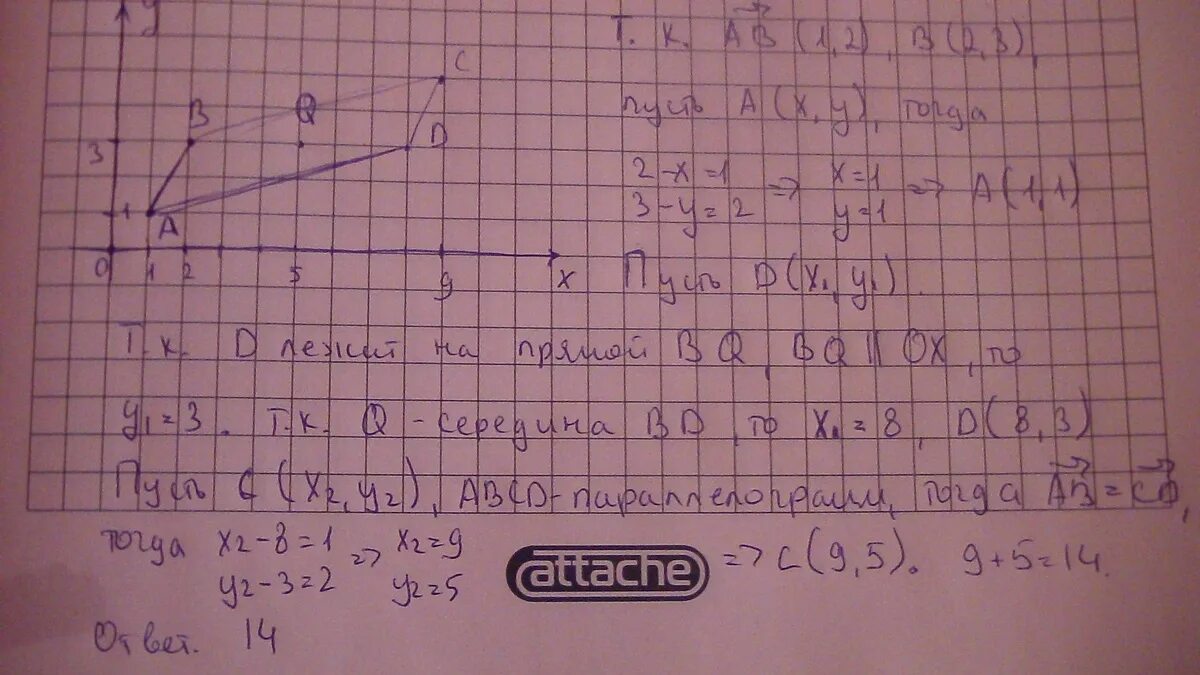 y
C
B
Q
D
3
1
A
0
1
2
5
9
x
Т. к. AB (1,2), B(2,3),
пусть A(x,y), тогда
2-x=1 => x=1 => A(1,1)
3-y=2 y=1
Пусть D(x₁ y₁).
Т.к. D лежит на прямой BQ, BQ || OX, то
y₁=3. Т.к. Q - середина BD, то x₁=8, D(8,3)
Пусть C (x₂,y₂), ABCD-параллелограмм, тогда AB=CD,
тогда x₂-8=1 => x₂=9 => C(9,5). 9+5=14.
y₂-3=2 y₂=5
attache
Ответ. 14